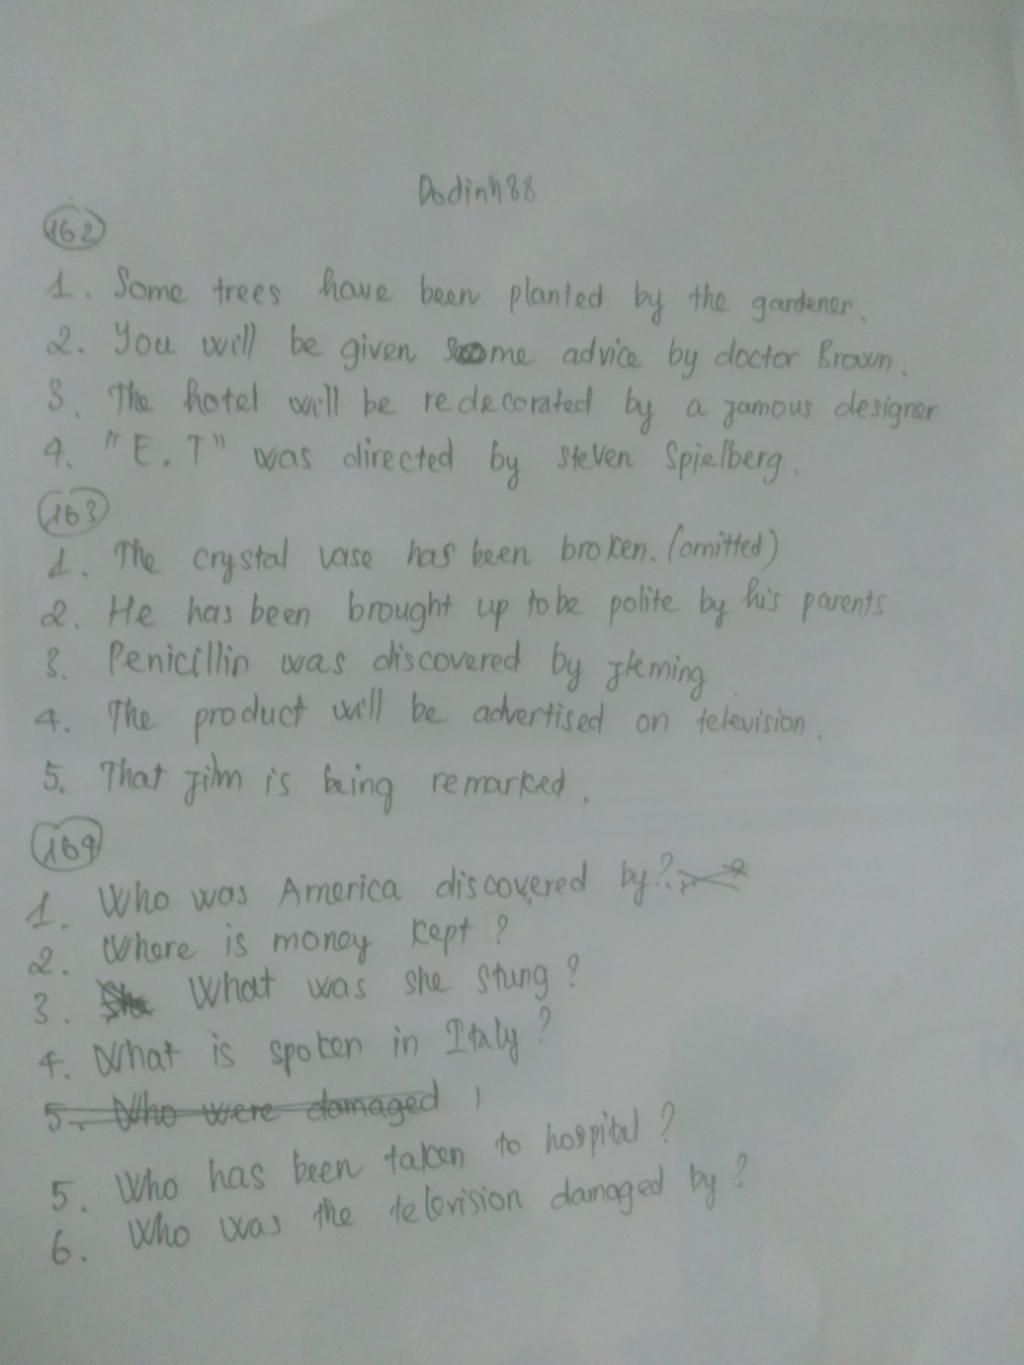 Dodinh88
162
1. Some trees have been planted by the gardener.
2. You will be given some advice by doctor Brown.
3. The hotel will be redecorated by a famous designer
4. "E.T" was directed by Steven Spielberg.
163
1. The crystal vase has been broken. (omitted)
2. He has been brought up to be polite by his parents
3. Penicillin was discovered by Fleming
4. The product will be advertised on television.
5. That film is being remarked.
164
1. Who was America discovered by?
2. Where is money kept?
3. What was she stung?
4. What is spoken in Italy?
5. Who were damaged
5. Who has been taken to hospital?
6. Who was the television damaged by?